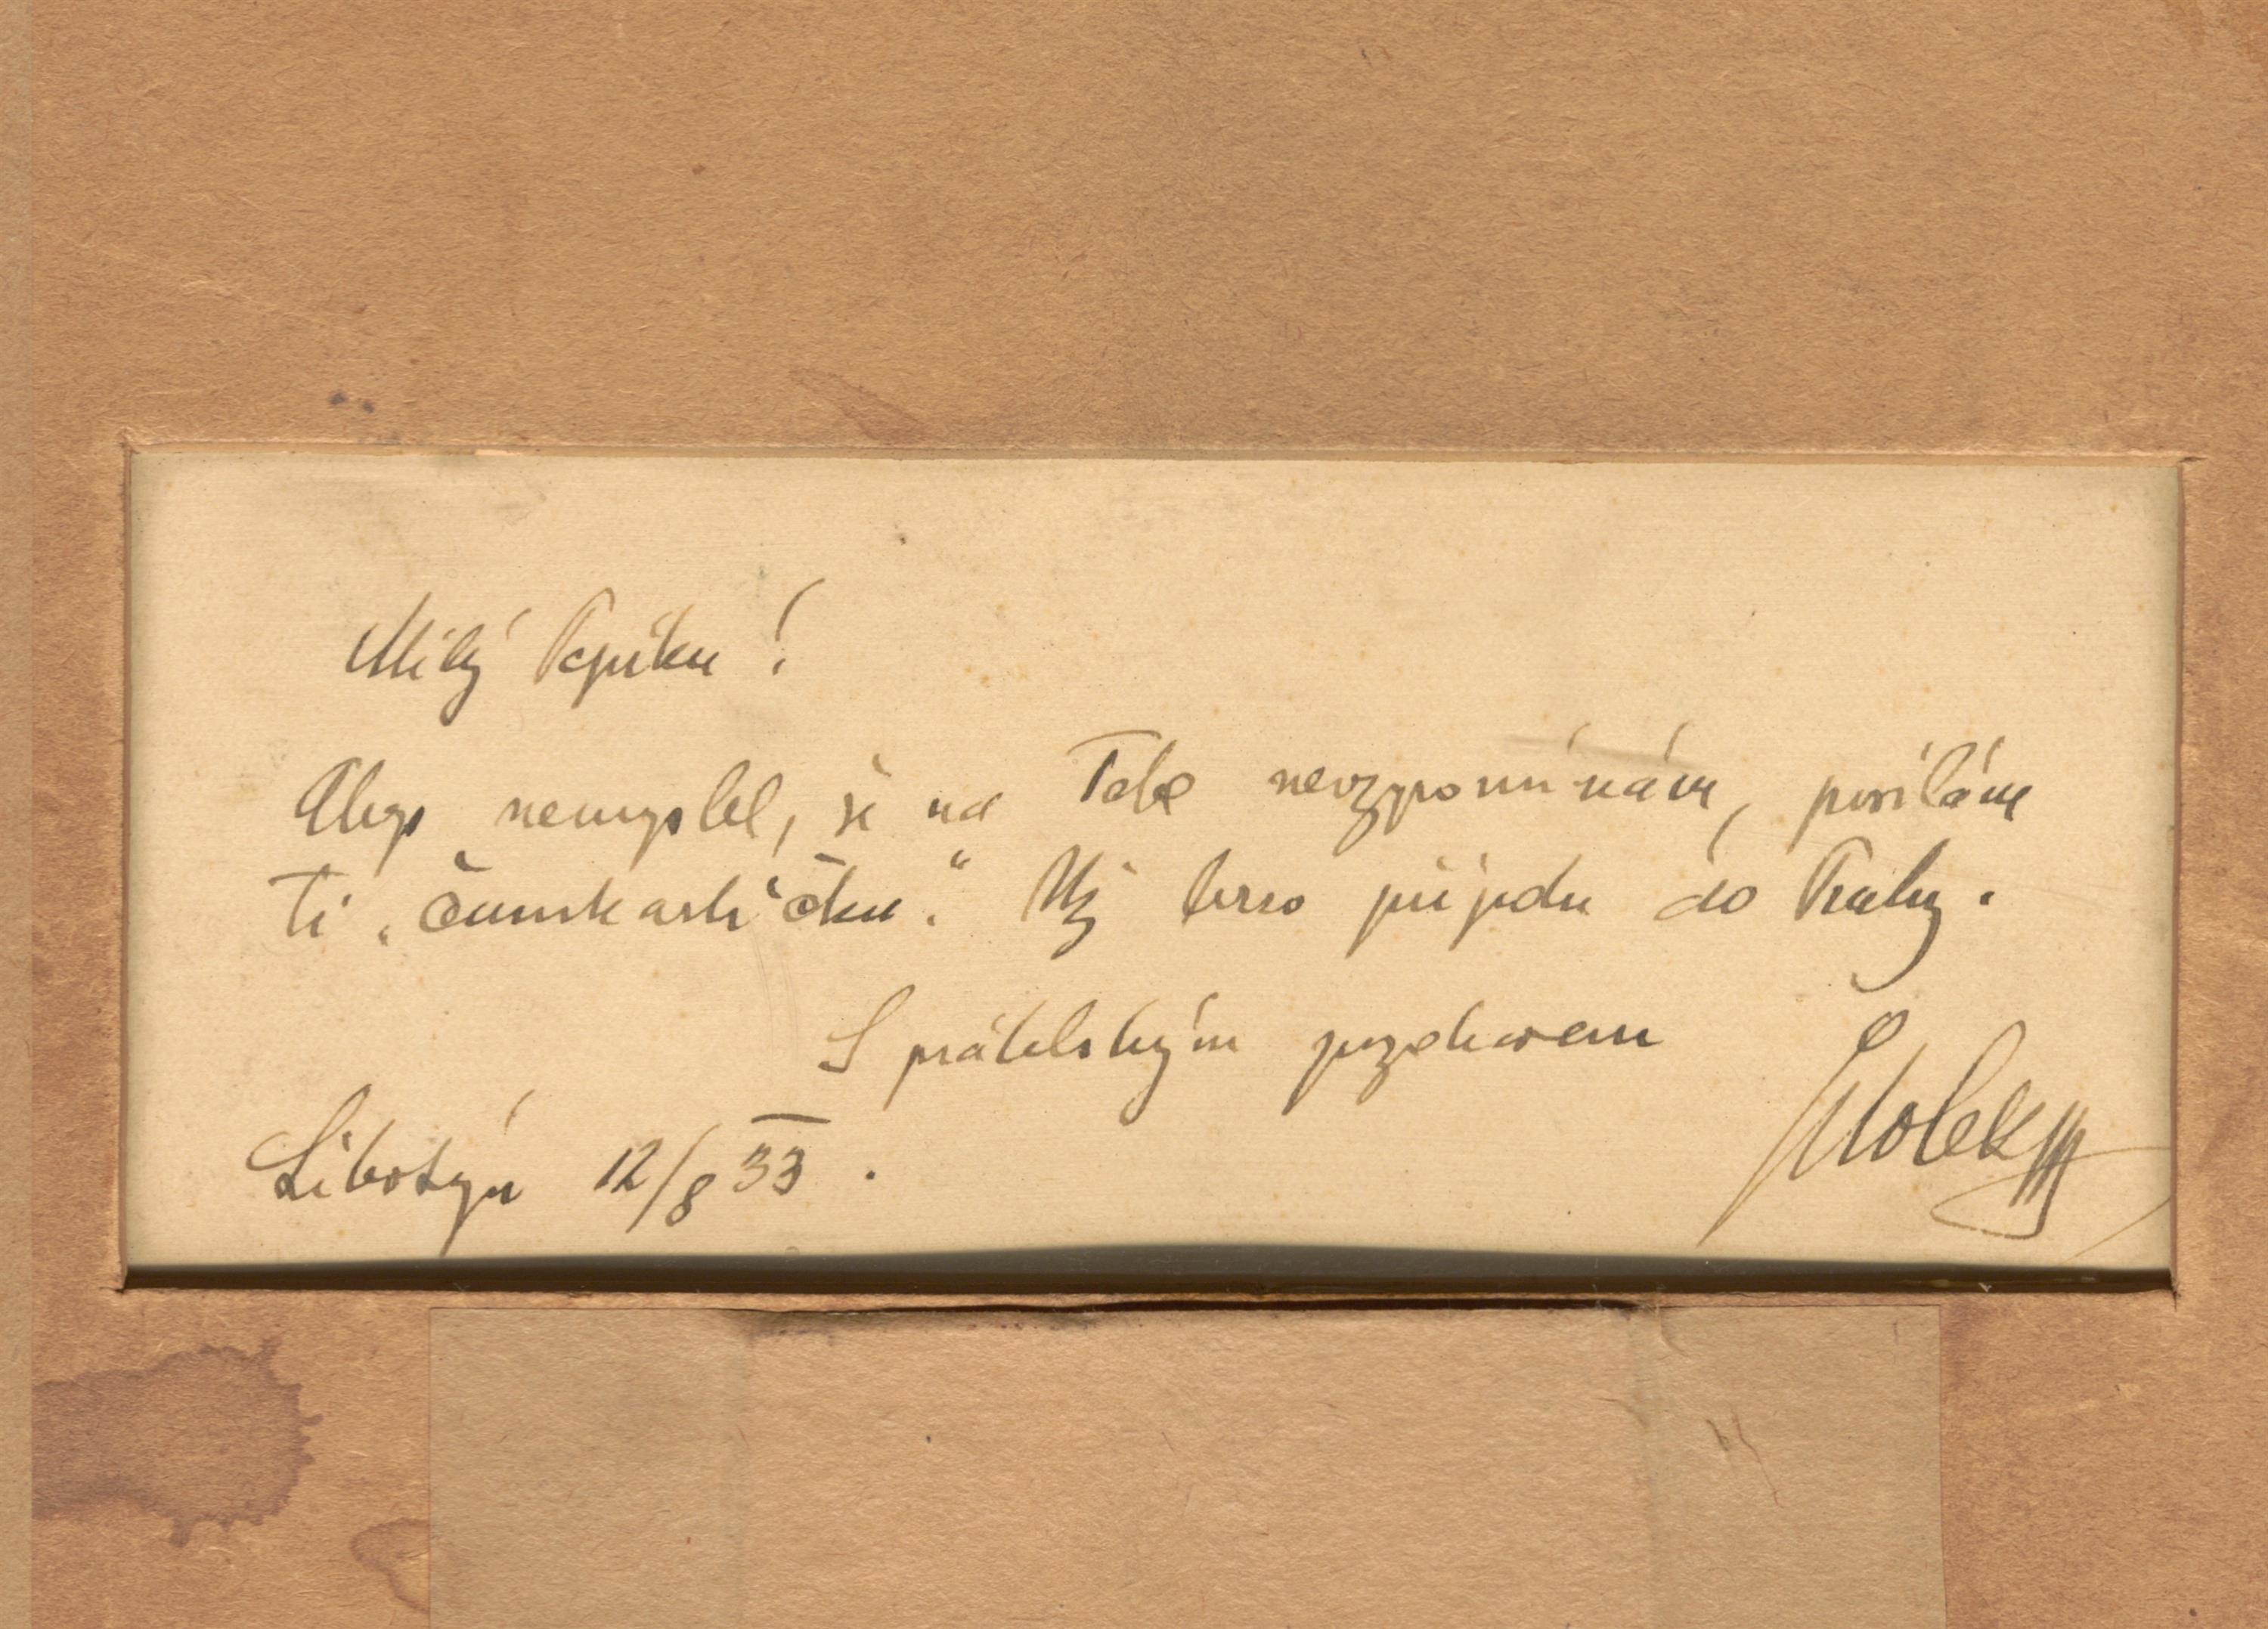 Milý Pepíku!
Abys nemyslel, že na Tebe nevzpomínám, posílám
Ti „čumkartičku." Už brzo přijedu do Prahy.
S přátelským pozdravem
Libotýn 12/8 33.